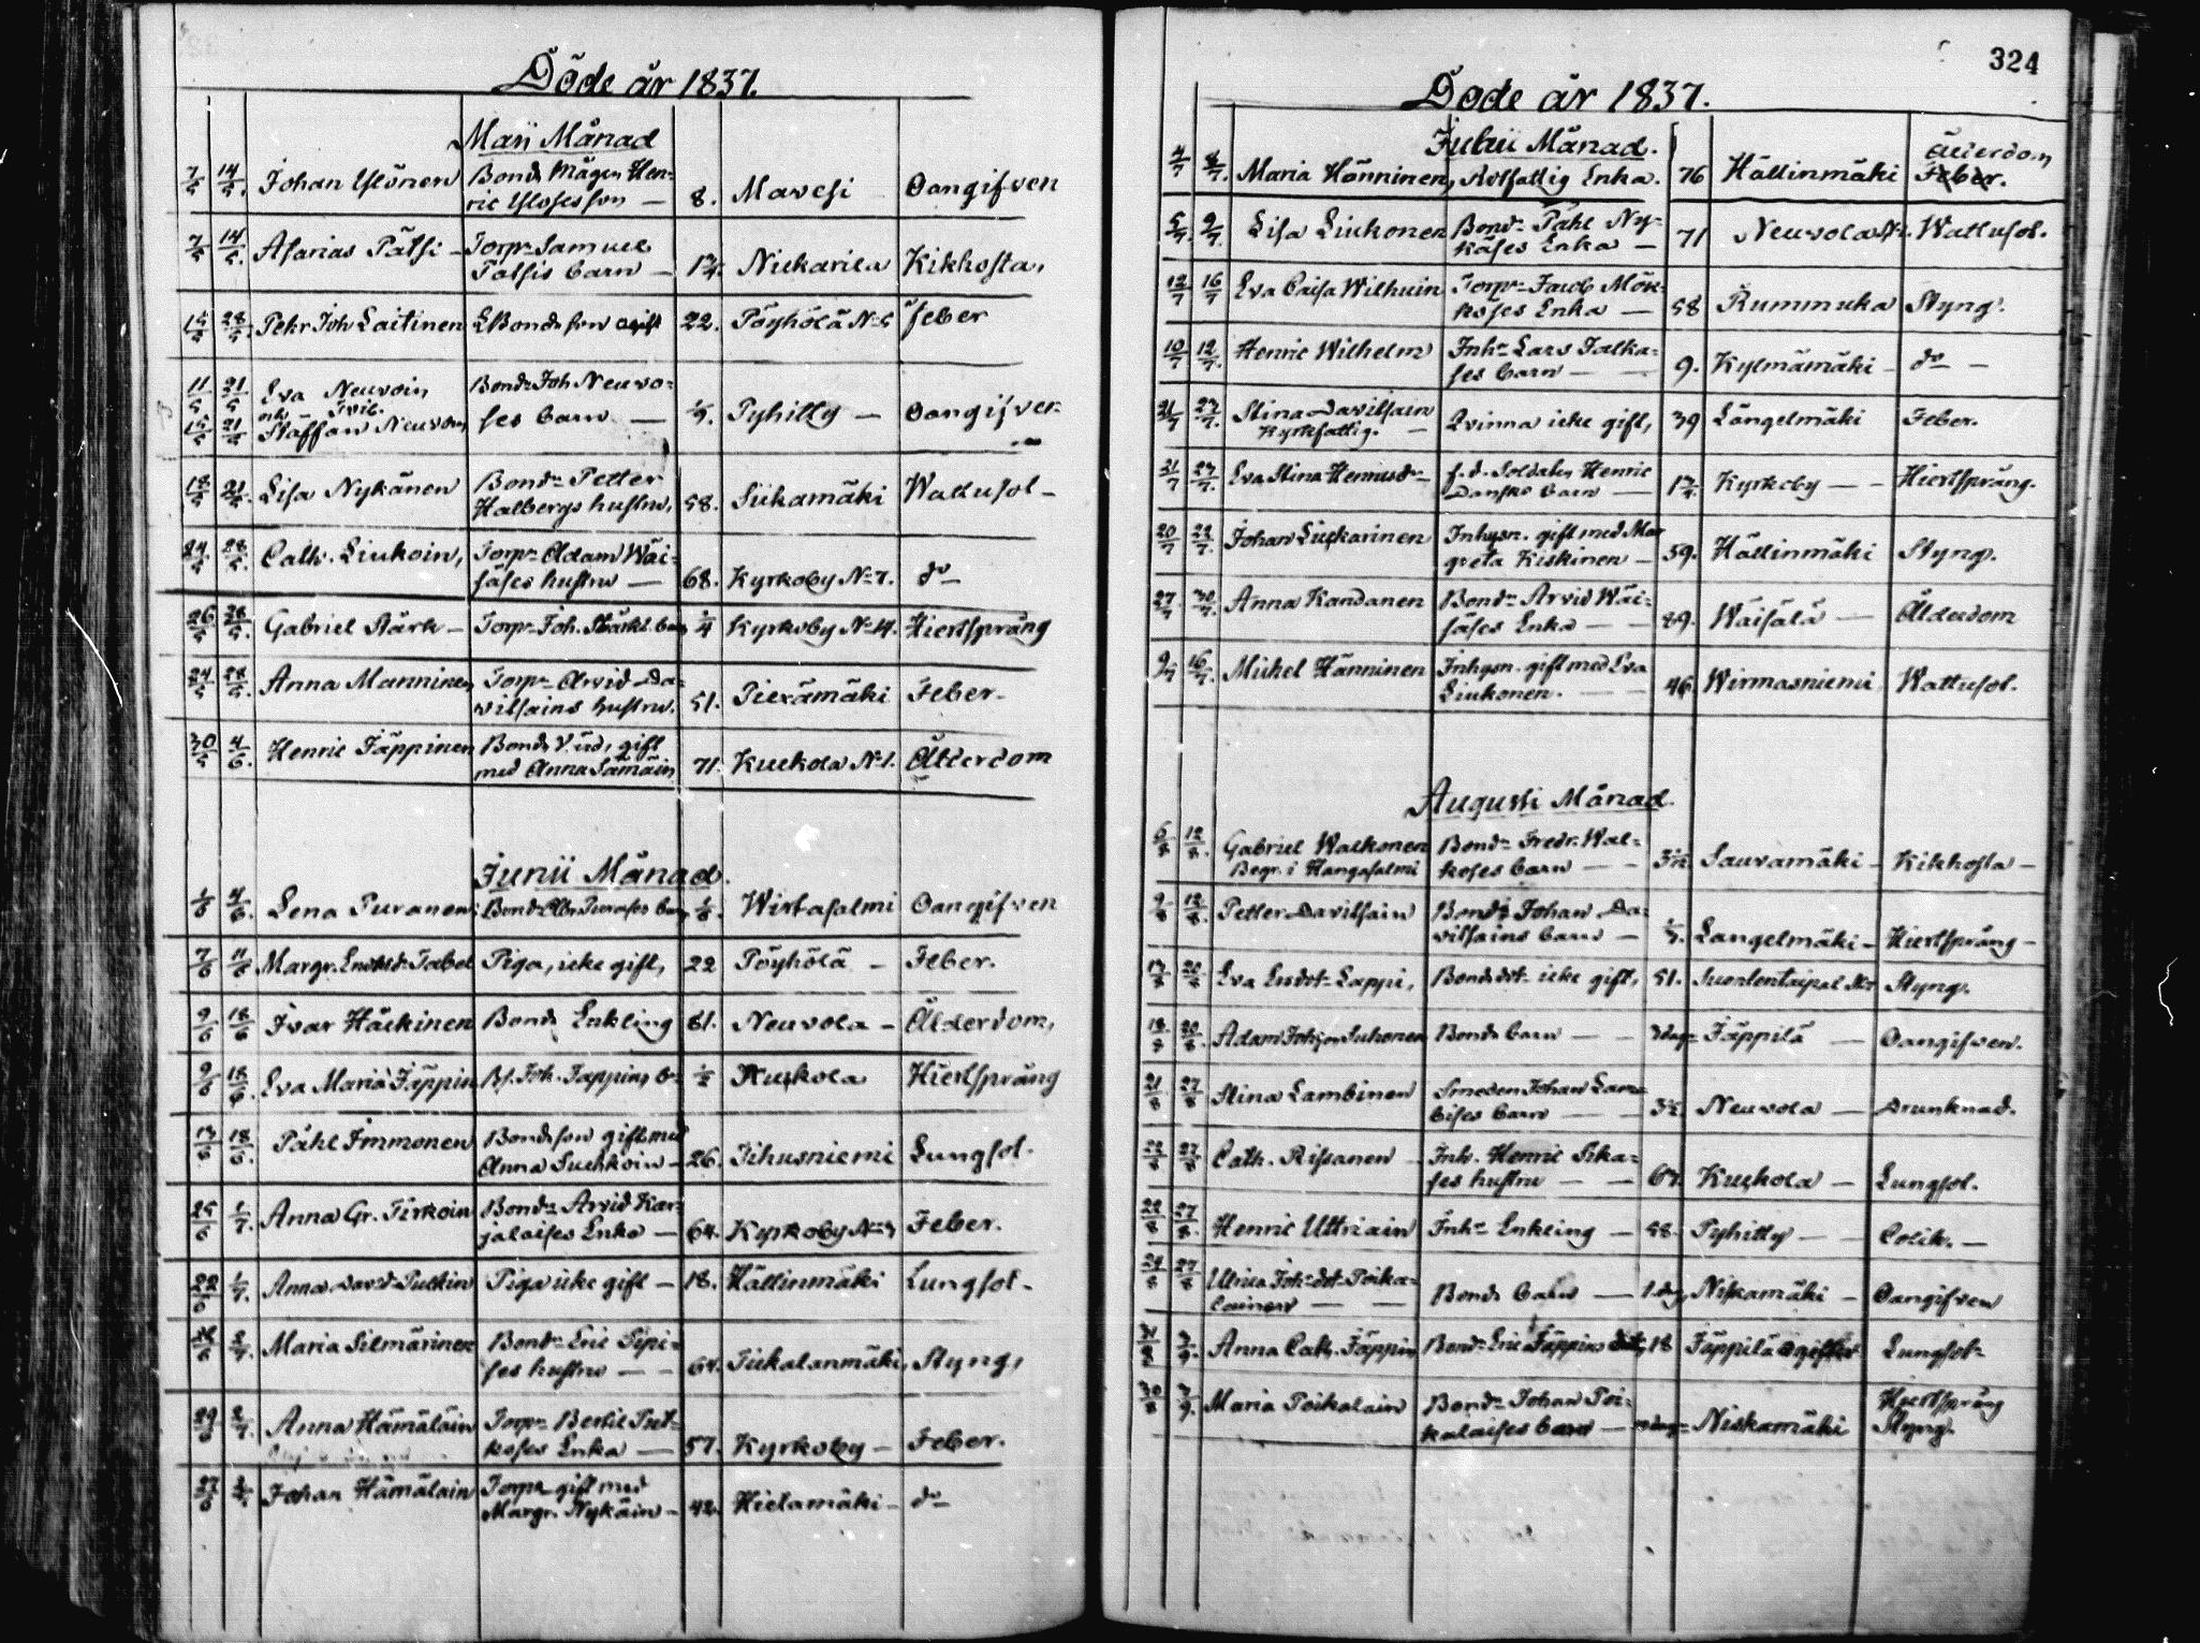 324
Döde år 1837.
Maii Månad
7/5 14/5. Johan Ylönen Bonde Mågen Hen-
ric Ylösesson — 8. Mavesi Oangifven
7/5 14/5. Asarias Pätsi - Torpr Samuel
Pätsis barn — 1 3/4. Nickarila Kikhosta,
15/5 28/5. Pehr Joh Laitinen Bonde son ogift 22. Pöyhölä No 5 Feber
11/5 21/5 Eva Neuvoin Bonde Joh Neuvo-
och Tvil.
15/5 21/5 Staffan Neuvon ses barn — Pyhilty — Oangifven
18/5 21/5. Lisa Nykänen Bonde Petter
Halbergs hustru, 58. Siikamäki Wattusot -
24/5 28/5. Cath. Liukoin, Torpr Adam Wäi-
säses hustru — 68. Kyrkoby No 7. do
26/5 28/5. Gabriel Stärk - Torpr Joh. Stärks barn 1/4 Kyrkoby No 4. Hiertsprång
24/5 28/5. Anna Manninen Torpr Arvid Da-
vilsains hustru. 51. Piexämäki Feber.
30/5 4/6. Henric Jäppinen Bonde gift
med Anna 71. Kuckola No 1. Ålderdom
Junii Månad
4/6. Lena Puranen Bonde Puranses barn Wirtasalmi Oangifven
7/6 11/6 Margr. Tabel Piga, icke gift, 22 Pöyhölä - Feber.
9/6 18/6 Ivar Häckinen Bonde Enkling 81. Neuvola - Ålderdom,
9/6 18/6. Eva Maria Jäppin Joh. Jäppins 1/2 Kuckola Hiertsprång
13/6 18/6. Påhl Immonen Bonde son gift med
Anna Suchkoin - 26. Tihusniemi Lungsot.
25/6 1/7. Anna Gr. Tirkoin Bonde Arvid Kar-
jalaises Enka — 64. Kyrkoby Feber.
22/6 1/7. Anna David Pulkin Piga icke gift — 18. Hällinmäki Lungsot -
2/7. Maria Silmärinen Bonde Eric Pipi-
ses hustru — 64. Tiekalanmäki, Styng,
29/6 2/7. Anna Hämäläin Torpr Bertil
koses Enka — 57. Kyrkoby — Feber.
27/6 Johan Hämäläin Torpr gift med
Margr. Nykäin - 42. Hietamäki - do
Döde år 1837.
Julii Månad.
Ålderdom
4/7 Maria Hänninen, Rotfattig Enka. 76 Hällinmäki Feber.
5/7. 9/7. Lisa Liukonen Bonde Påhl Ny-
käses Enka — 71 Neuvola Wattusot.
12/7 16/7 Eva Caisa Wilhuin Torpr Jacob Mön-
köses Enka — 58 Rummuka Styng.
10/7 12/7. Henric Wilhelm Inhr Lars Jalka-
ses barn — 9. Kylmämäki - do -
21/7 23/7. Stina Davilsain
Kyrkfattig. — Qvinna icke gift, 39 Längelmäki Feber.
21/7 23/7. Eva Stina Henricsdr f.d. Soldaten Henric
Danske barn — Kyrkoby — Hiertsprång.
20/7 22/7. Johan Luckarinen Inhysn. gift med Mar
greta Kiskinen — 59. Hällinmäki Styng.
27/7. 30/7. Anna Kandanen Bonde Arvid Wäi-
säses Enka — 89. Wäisälä — Ålderdom
9/7 16/7. Michel Hänninen Inhysn. gift med Eva
Liukonen. — 46 Wirmasniemi Wattusot.
Augusti Månad.
6/8 12/8. Gabriel Walkonen Bonde Fredr. Wal-
Begr. i Hangasalmi koses barn — Sauvamäki - Kikhosta -
9/8 12/8. Petter Davilsain Bonde Johan Da-
vilsains barn — Längelmäki - Hiertsprång -
20/8 Eva Lappi, Bonde dotr icke gift, 51. Suontentaipal Styng.
18/8 20/8. Adam Johan Bonde barn — Jäppilä — Oangifven.
21/8 27/8 Stina Lambinen Smeden Johan Lam-
bises barn — 3 1/2 Neuvola — Drunknad.
22/8 27/8 Cath. Rissanen Inh. Henric Pika-
ses hustru — 67. Kuckola — Lungsot.
22/8 27/8. Henric Uttriain Inhr Enkling — 58. Pyhilty — Colik. —
24/8 27/8 Ulrica Joh. dotr Poika-
lainen — Bonde barn — 1 dag, Niskamäki - Oangifven
31/8 3/9. Anna Cath. Jäppin Bonde Eric Jäppins dotr, 18 Jäppilä ogift Lungsot
30/8 3/9. Maria Poikalain Bonde Johan Poi-
Hiertsprång
kalaises barn — Niskamäki Styng.